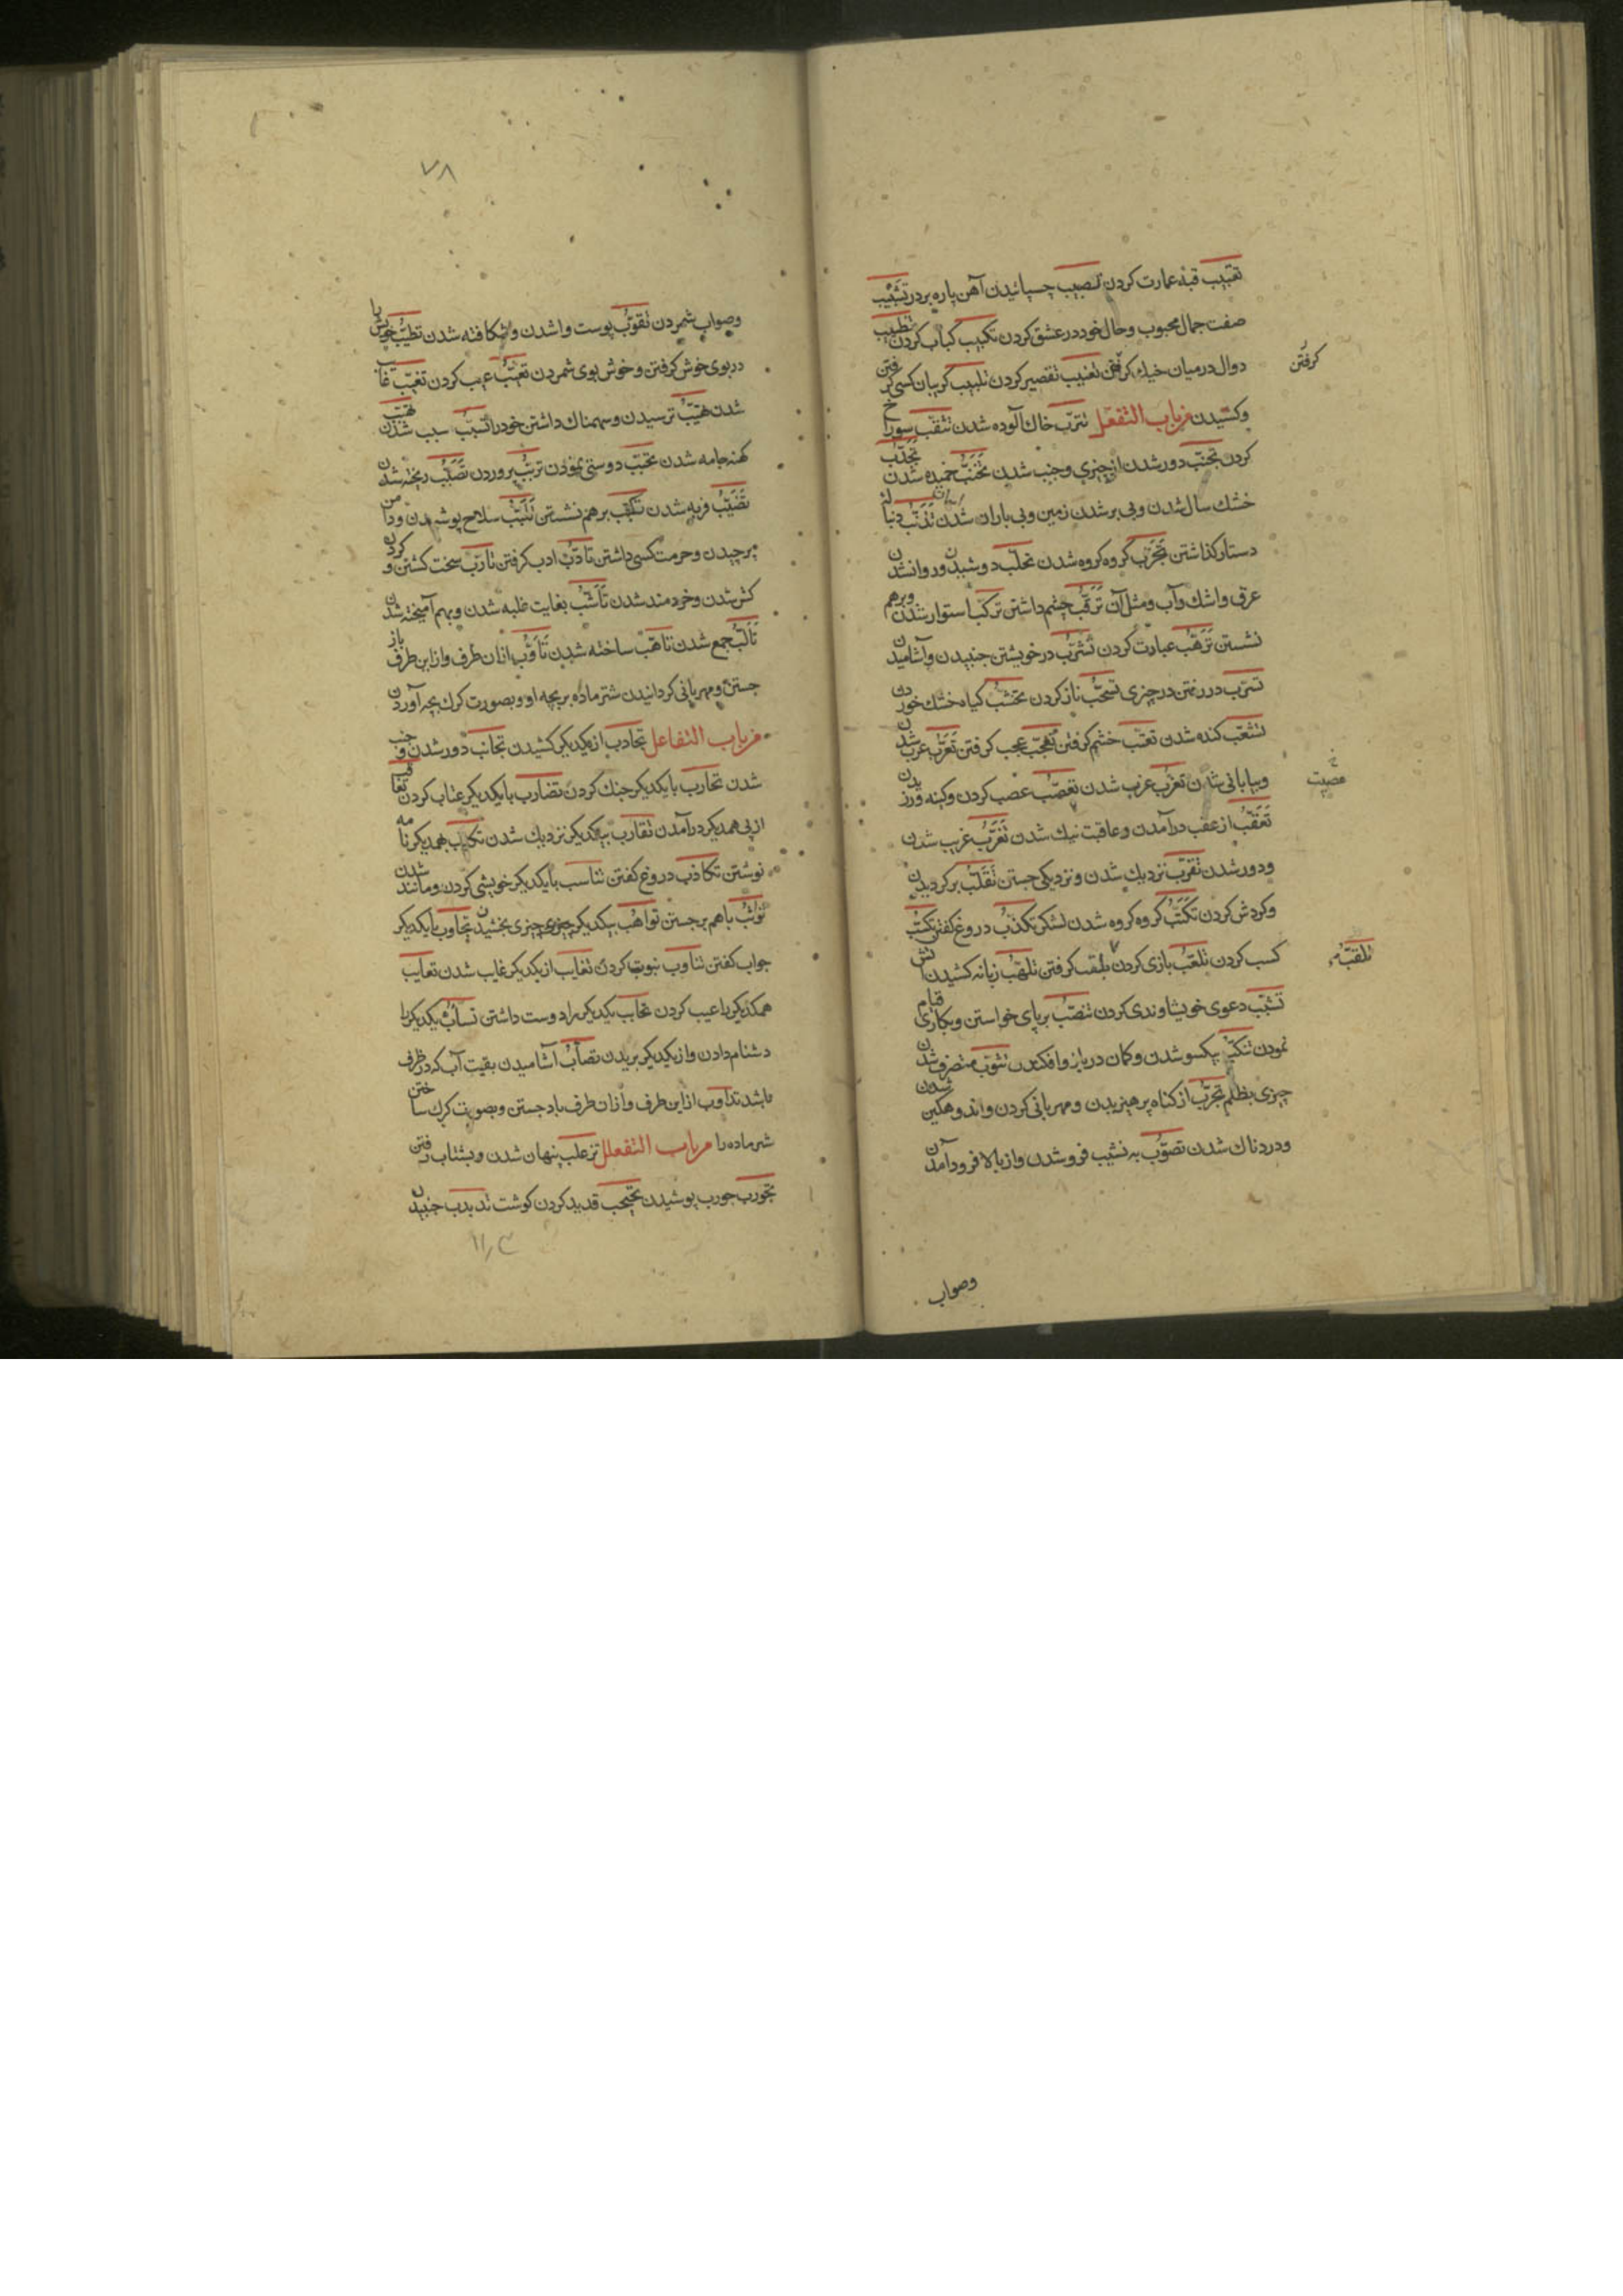 تقبیب قبه عمارت کردن تضبیب چسپانیدن آهن پاره بر در تشبیب
صفت جمال محبوب و حال خود در عشق کردن تکبیب کباب کردن تطبیب
دوال در میان خیک کرفتن تغبیب تقصیر کردن تلبیب کریبان کسی کرفتن
کرفتن
وکشیدن من باب التفعل تترب خاک آلوده شدن تثقب سوراخ
کردن تجنب دور شدن از چیزی و جنب شدن تحنب خمیده شدن تجدب
خشک سال شدن و بی بر شدن زمین و بی باران شدن تذنب دنباله
دستار کذاشتن تحزب کروه کروه شدن تحلب دوشیدن و روان شدن
عرق و اشک و آب و مثل آن ترقب چشم داشتن ترکب استوار شدن و برهم
نشستن ترهب عبادت کردن تشرب در خویشتن جنبیدن و آشامیدن
تسرب در رفتن در چیزی تسحب ناز کردن تخشب کیاه خشک خوردن
تشعب کنده شدن تعتب خشم کرفتن تعجب عجب کرفتن تعرب عرب شدن
و بیابانی شدن تعزب عزب شدن تعصب عصب کردن و کینه ورزیدن
عصیت
تعقب از عقب درآمدن و عاقبت نیک شدن تغرب غریب شدن
و دور شدن تقرب نزدیک شدن و نزدیکی جستن تقلب برکردیدن
و کردش کردن تکتب کروه کروه شدن لشکر تکذب دروغ کفتن تکسب
کسب کردن تلعب بازی کردن بلقب کرفتن تلهب زبانه کشیدن آتش
تلقب
تنسب دعوی خویشاوندی کردن تنصب برپای خواستن و بکاری قیام
نمودن تنکب یکسو شدن و کمان در بازو افکندن تثوب متصرف شدن
چیزی بظلم تحوب از کناه پرهیزیدن و مهربانی کردن و اندوهکین شدن
و دردناک شدن تصوب به نشیب فرو شدن و از بالا فرود آمدن
وصواب
۷۸
وصواب شمردن تقوب پوست وا شدن و شکافته شدن تطیب خویش را
در بوی خوش کرفتن و خوش بوی شمردن تعیب عیب کردن تغیب غایب
شدن تهیب ترسیدن و سهمناک داشتن خود را تسبب سبب شدن تهبب
کهنه جامه شدن تحبب دوستی نمودن تربب پروردن تصبب ریخته شدن
تضبب فربه شدن تکبب برهم نشستن تلبب سلاح پوشیدن و دامن
برچیدن و حرمت کسی داشتن تادب ادب کرفتن تارب سخت کشتن و کردن
کش شدن و خردمند شدن تاشب بغایت غلبه شدن و بهم آمیخته شدن
تالب جمع شدن تاهب ساخته شدن تاوب از ان طرف و از این طرف باز
جستن و مهربانی کردانیدن شتر ماده بر بچه او و بصورت کرک بچه آوردن
من باب التفاعل تجاذب از یکدیکر کشیدن تجانب دور شدن و جنب
شدن تحارب با یکدیکر جنک کردن تضارب با یکدیکر عتاب کردن تعاقب
از پی همدیکر درآمدن تقارب بیکدیکر نزدیک شدن تکاتب بهمدیکر نامه
نوشتن تکاذب دروغ کفتن تناسب با یکدیکر خویشی کردن و مانند شدن
تواثب باهم برجستن تواهب بیکدیکر چیزی بخشیدن تجاوب با یکدیکر
جواب کفتن تناوب نبوبت کردن تغایب از یکدیکر غایب شدن تعایب
همدیکر را عیب کردن تحابب یکدیکر را دوست داشتن تسابب یکدیکر را
دشنام دادن و از یکدیکر بریدن تصابب آشامیدن بقیت آب که در ظرف
باشد تذاوب از این طرف و از ان طرف باد جستن و بصورت کرک ساختن
شتر ماده را من باب التفعلل تزعلب پنهان شدن و بشتاب رفتن
تجورب جورب پوشیدن تجبجب قدید کردن کوشت تذبذب جنبیدن